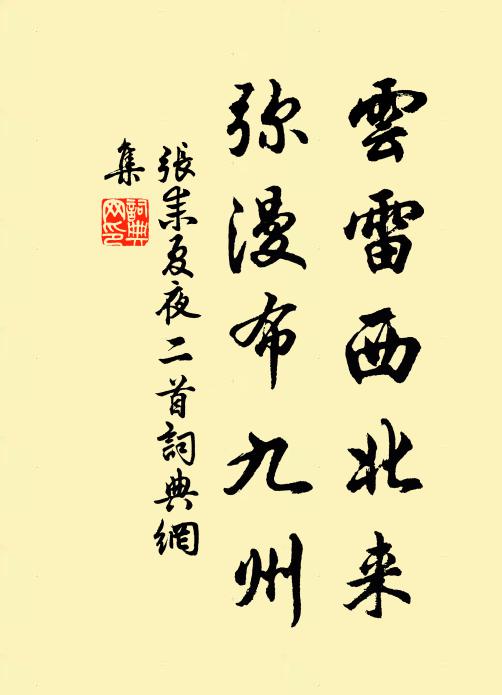 雲雷西北来
弥漫布九州
張耒夏夜二首詞典網
集
詞典網印